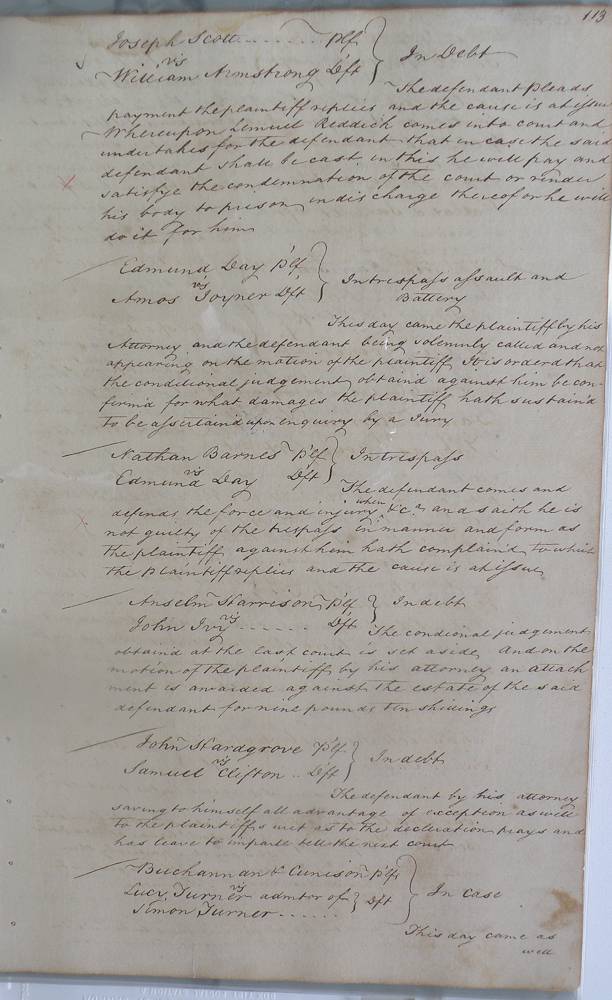 113
Joseph Scott ........ Plf
vs } In Debt
William Armstrong Dft
The defendant Pleads
payment the plaintiff replies and the cause is at issue
Whereupon Lemuel Reddick comes into court and
undertakes for the defendant that in case the said
defendant shall be cast in this he will pay and
satisfye the condemnation of the court or render
his body to prison in discharge thereof or he will
do it for him
Edmund Day Plf
vs } In trespass assault and
Amos Joyner Dft Battery
This day came the plaintiff by his
Attorney and the defendant being solemnly called and not
appearing on the motion of the plaintiff It is orderd that
the conditional judgement obtaind against him be con-
firm'd for what damages the plaintiff hath sustain'd
to be assertain'd upon enquiry by a Jury
Nathan Barnes Plf
vs } In trespass
Edmund Day Dft
The defendant comes and
defends the force and injury when &c and saith he is
not guilty of the trespass in manner and form as
the plaintiff against him hath complaind to which
the Plaintiff replies and the cause is at issue
Anselm Harrison Plf
vs } In debt
John Ivy ...... Dft
The condional judgement
obtaind at the last court is set aside And on the
motion of the plaintiff by his attorney an attach
ment is awarded against the estate of the said
defendant for nine pounds ten shillings
John Hardgrove Plf
vs } In debt
Samuel Clifton .. Dft
The defendant by his attorney
saving to himself all advantage of exception as well
to the plaintiffs writ as to the decleration prays and
has leave to imparle tell the next court
Buchannan & Cunison Plfs
vs } In case
Lucy Turner admtor of } Dft
Simon Turner ......
This day came as
well